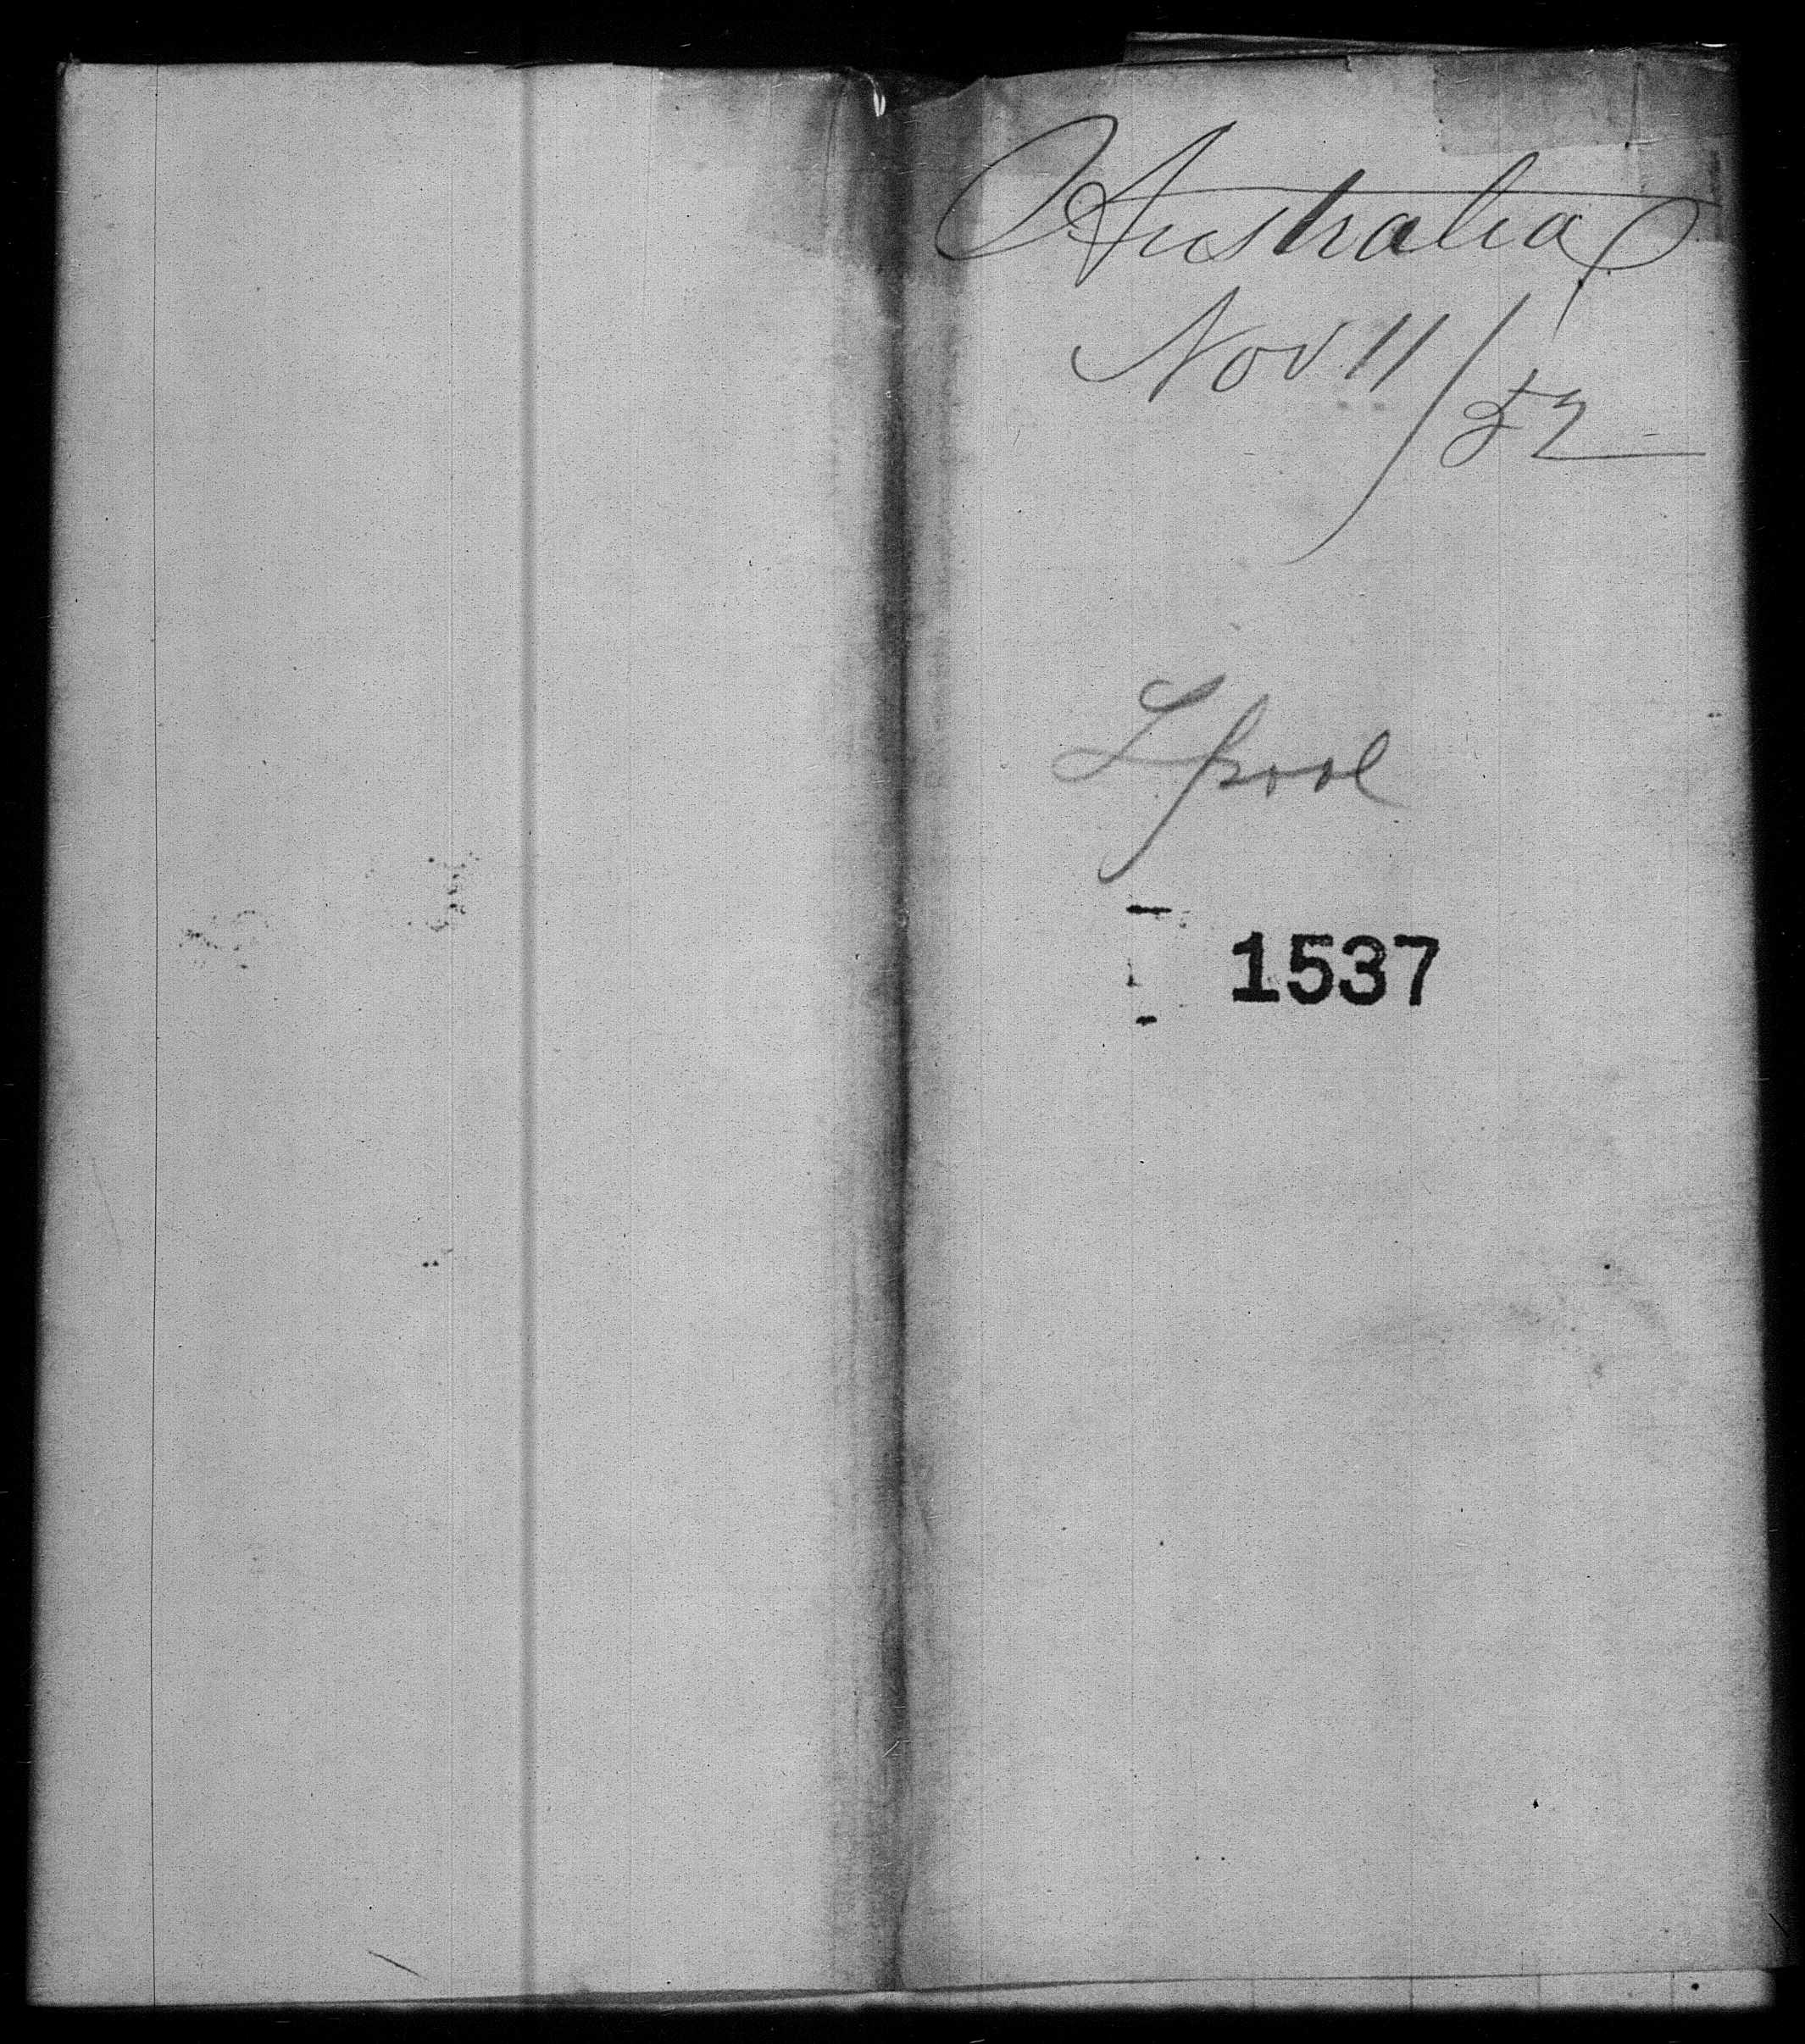 Australia
Nov 11/52
Lpool
1537